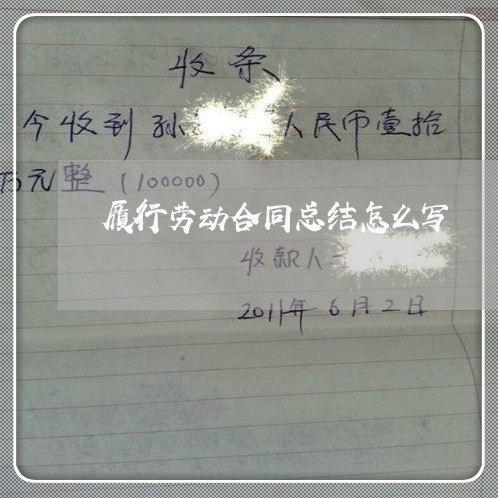 收条
今收到孙 人民币壹拾
万元整(100000)
履行劳动合同总结怎么写
收款人
2011年6月2日